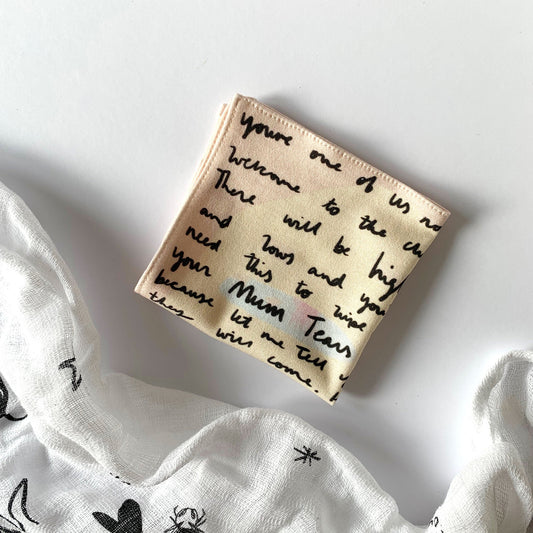 you're one of us no
Welcome to the clu
There will be high
and lows and you
need this to wipe
your Mum Tears
because let me tell
they will come.